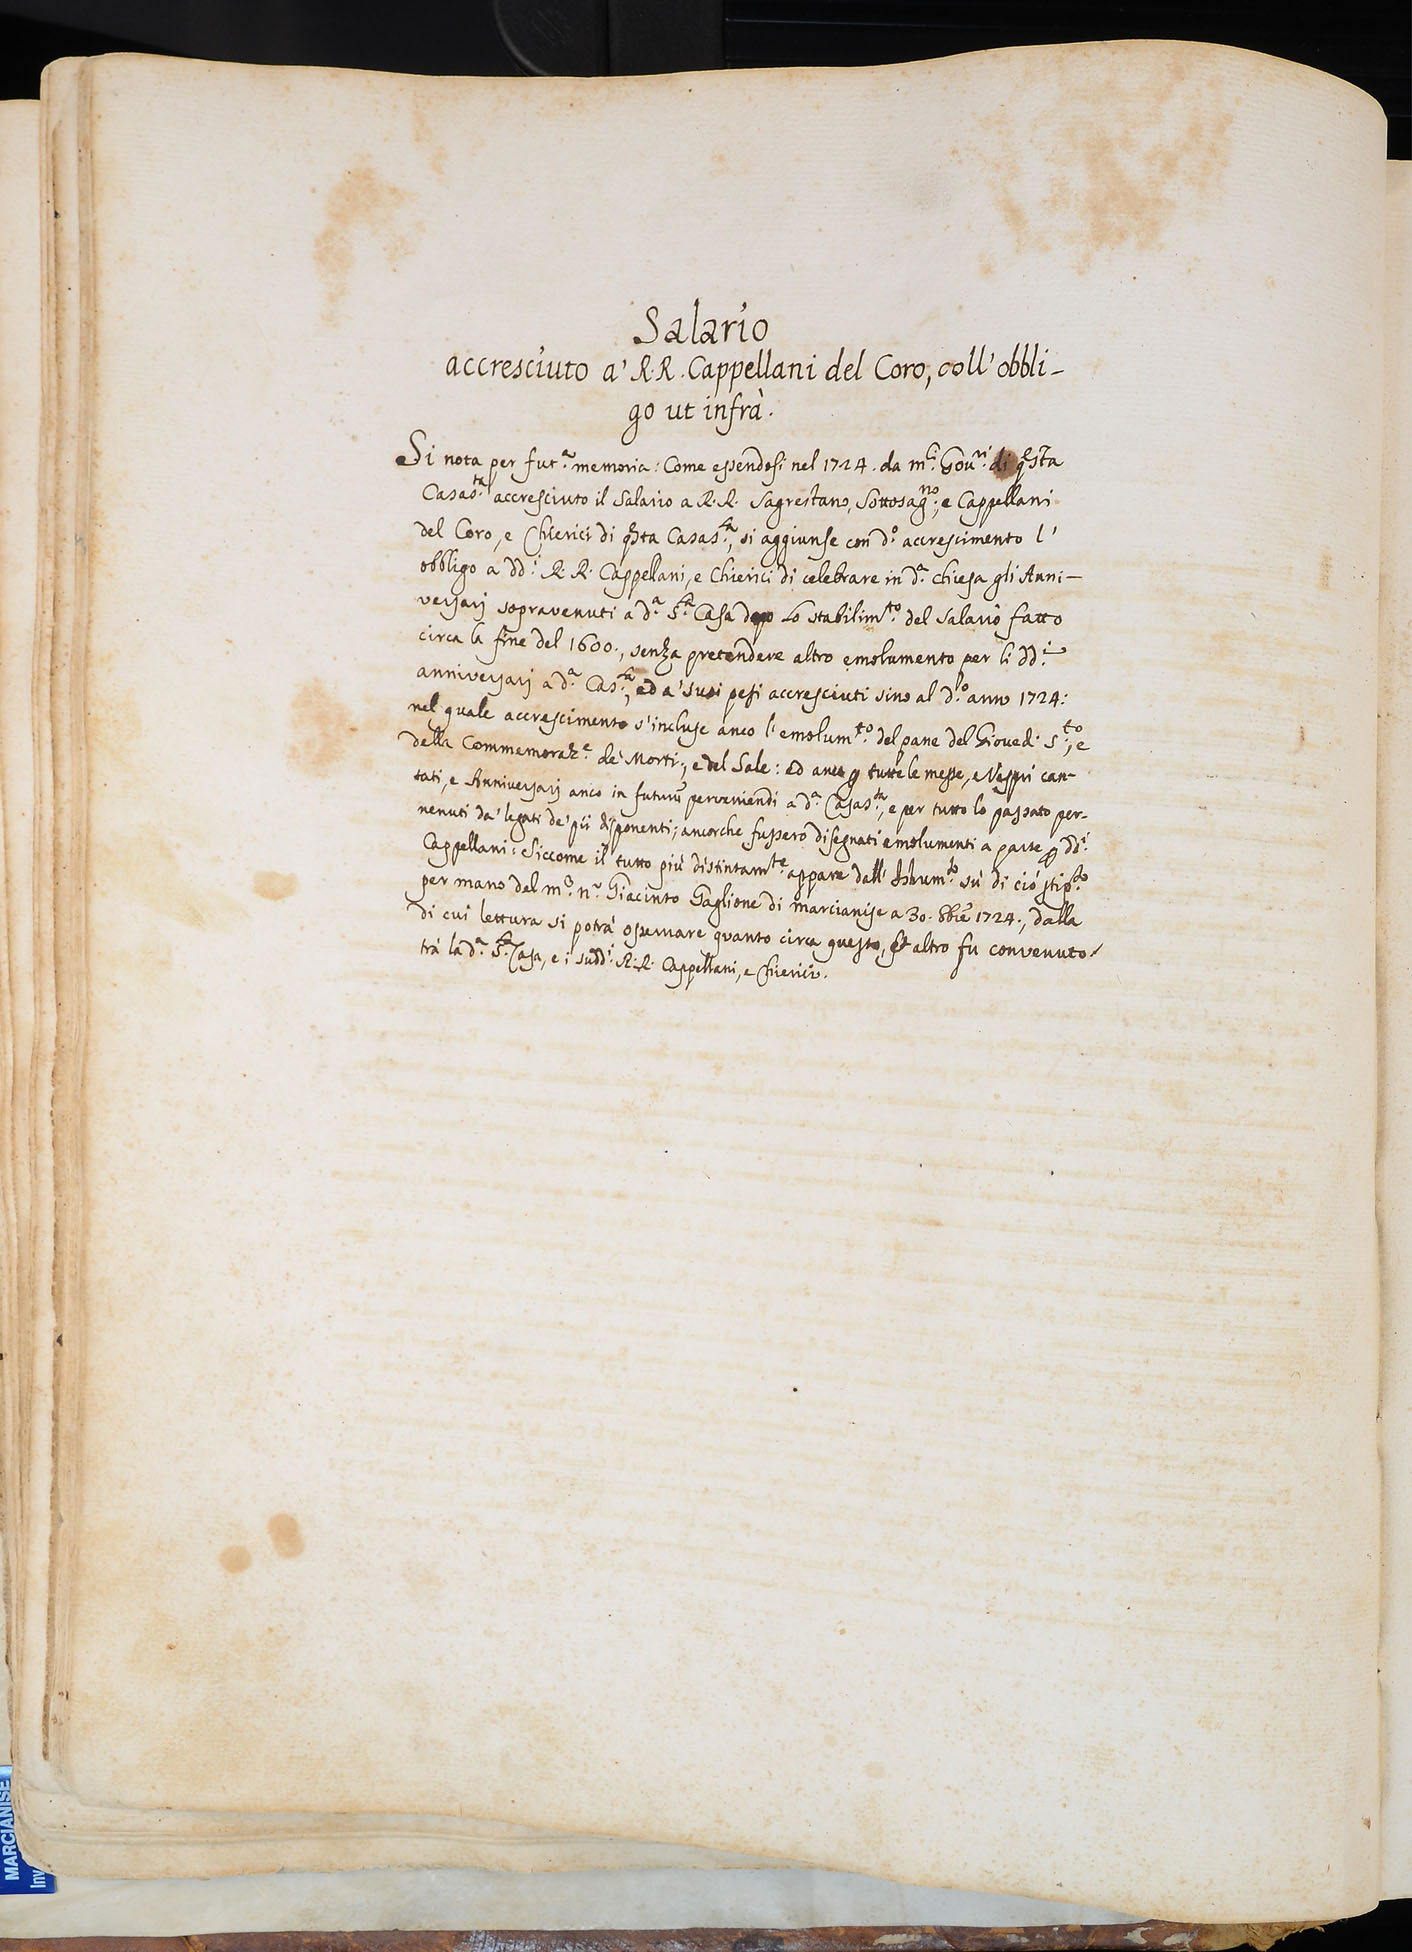 Salario
accresciuto a' R.R. Cappellani del Coro, coll' obbli-
go ut infrà.
Si nota per fut.a memoria: Come essendosi nel 1724. da m.ci Gov.ri di q̃sta
Casas.ta accresciuto il Salario a R.R. Sagrestano, Sottosag.no, e Cappellani
del Coro, e Chierici di q̃sta Casas.ta, si aggiunse con d.o accrescimento l'
obbligo a dd.i R.R. Cappellani, e Chierici di celebrare in d.a chiesa gli Anni-
versarj sopravenuti a d.a S.ta Casa dopo lo stabilim.to del salario fatto
circa la fine del 1600., senza pretendere altro emolumento per li dd.i
anniversarj a d.a Cas.ta, ed a' suoi pesi accresciuti sino al d.o anno 1724:
nel quale accrescimento s'incluse anco l'emolum.to del pane del Giovedì S.to, e
della Commemoraz.e de' Morti; e del Sale: ed anco p tutte le messe, e Vespri can-
tati, e Anniversarj anco in futurũ perveniendi a d.a Casas.ta, e per tutto lo passato per-
venuti da' legati de' pii disponenti; ancorche fussero disegnati emolumenti a parte p dd.i
Cappellani: Siccome il tutto più distintam.te appare dall' Istrum.to sù di ciò stip.to
per mano del m.o n.r Giacinto Gaglione di Marcianise a 30. 8bre 1724., dalla
di cui lettura si potrà osservare quanto circa questo, et altro fu convenuto
trà la d.a S.ta Casa, e i sudd.i R.R. Cappellani, e Chierici.
MARCIANISE
Inv